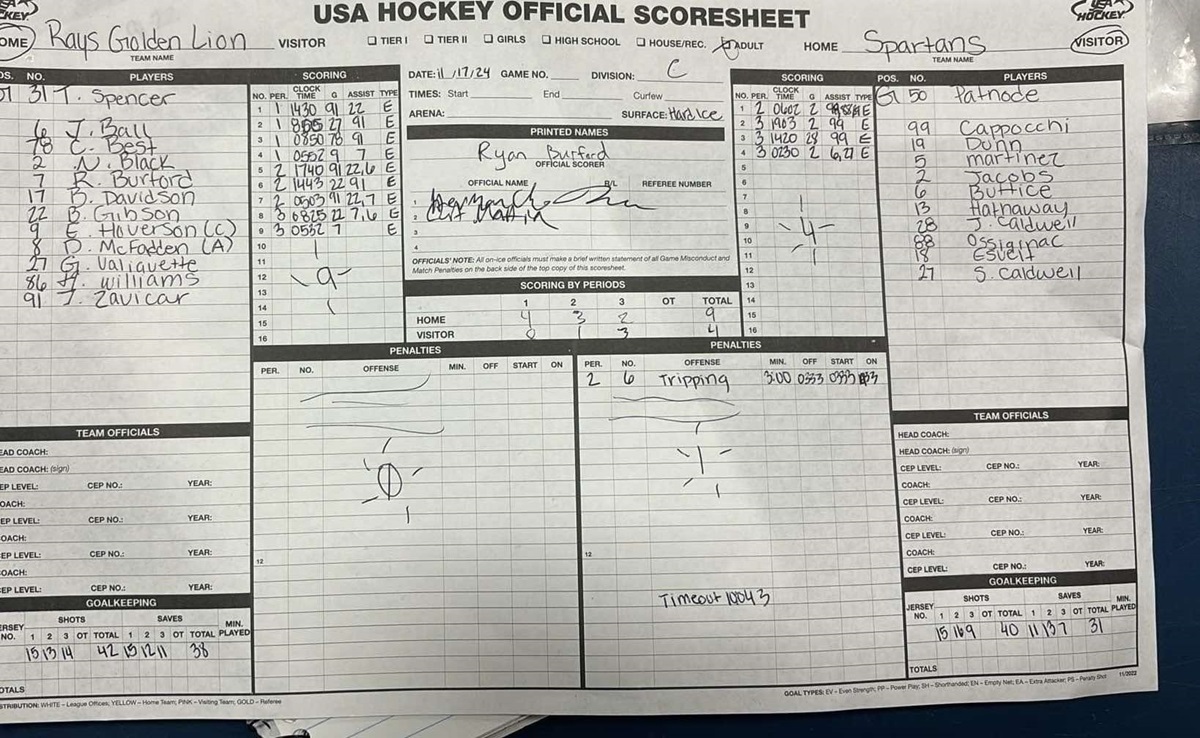 USA HOCKEY OFFICIAL SCORESHEET
KEY.
USA
HOCKEY.
OME Rays Golden Lion VISITOR
TEAM NAME
☐ TIER I ☐ TIER II ☐ GIRLS ☐ HIGH SCHOOL ☐ HOUSE/REC. ADULT
HOME Spartans VISITOR
TEAM NAME
OS. NO. PLAYERS
31 T. Spencer
6 J. Ball
78 C. Best
2 N. Black
7 R. Burford
17 B. Davidson
22 B. Gibson
9 E. Hoverson (C)
8 D. McFadden (A)
27 G. Valiquette
86 H. Williams
91 J. Zavicar
SCORING
NO. PER. CLOCK TIME G ASSIST TYPE
1 1 1430 91 22 E
2 1 27 91 E
3 1 0850 78 91 E
4 1 0552 9 7 E
5 2 1740 91 22,6 E
6 2 1443 22 91 E
7 2 0503 91 22,7 E
8 3 0825 22 7,6 E
9 3 0532 7 E
10
11
12
13
14
15
16
9
DATE: 11/17/24 GAME NO. DIVISION: C
TIMES: Start End Curfew
ARENA: SURFACE: Hard Ice
PRINTED NAMES
Ryan Burford
OFFICIAL SCORER
OFFICIAL NAME R/L REFEREE NUMBER
1
2
3
4
OFFICIALS' NOTE: All on-ice officials must make a brief written statement of all Game Misconduct and
Match Penalties on the back side of the top copy of this scoresheet.
SCORING BY PERIODS
1 2 3 OT TOTAL
HOME 4 3 2 9
VISITOR 0 1 3 4
SCORING
NO. PER. CLOCK TIME G ASSIST TYPE
1 2 0602 2 E
2 3 1903 2 99 E
3 3 1420 28 99 E
4 3 0230 2 6,27 E
5
6
7
8
9
10
11
12
13
14
15
16
4
POS. NO. PLAYERS
G 50 Patnode
99 Cappocchi
19 Dunn
5 Martinez
2 Jacobs
6 Buttice
13 Hathaway
28 J. Caldwell
88 Ossignac
18 Esveit
27 S. Caldwell
PENALTIES
PER. NO. OFFENSE MIN. OFF START ON
0
12
PENALTIES
PER. NO. OFFENSE MIN. OFF START ON
2 6 Tripping 3:00 0333 0333
1
12
Timeout 10043
TEAM OFFICIALS
EAD COACH:
EAD COACH: (sign)
EP LEVEL: CEP NO.: YEAR:
OACH:
CEP LEVEL: CEP NO.: YEAR:
OACH:
CEP LEVEL: CEP NO.: YEAR:
OACH:
EP LEVEL: CEP NO.: YEAR:
GOALKEEPING
SHOTS SAVES MIN.
ERSEY NO. 1 2 3 OT TOTAL 1 2 3 OT TOTAL PLAYED
15 13 14 42 15 12 11 38
OTALS
TEAM OFFICIALS
HEAD COACH:
HEAD COACH: (sign)
CEP LEVEL: CEP NO.: YEAR:
COACH:
CEP LEVEL: CEP NO.: YEAR:
COACH:
CEP LEVEL: CEP NO.: YEAR:
COACH:
CEP LEVEL: CEP NO.: YEAR:
GOALKEEPING
SHOTS SAVES MIN.
JERSEY NO. 1 2 3 OT TOTAL 1 2 3 OT TOTAL PLAYED
15 16 9 40 11 13 7 31
TOTALS
STRIBUTION: WHITE – League Offices; YELLOW – Home Team; PINK – Visiting Team; GOLD – Referee
GOAL TYPES: EV - Even Strength; PP - Power Play; SH - Shorthanded; EN - Empty Net; EA - Extra Attacker; PS - Penalty Shot 11/2022